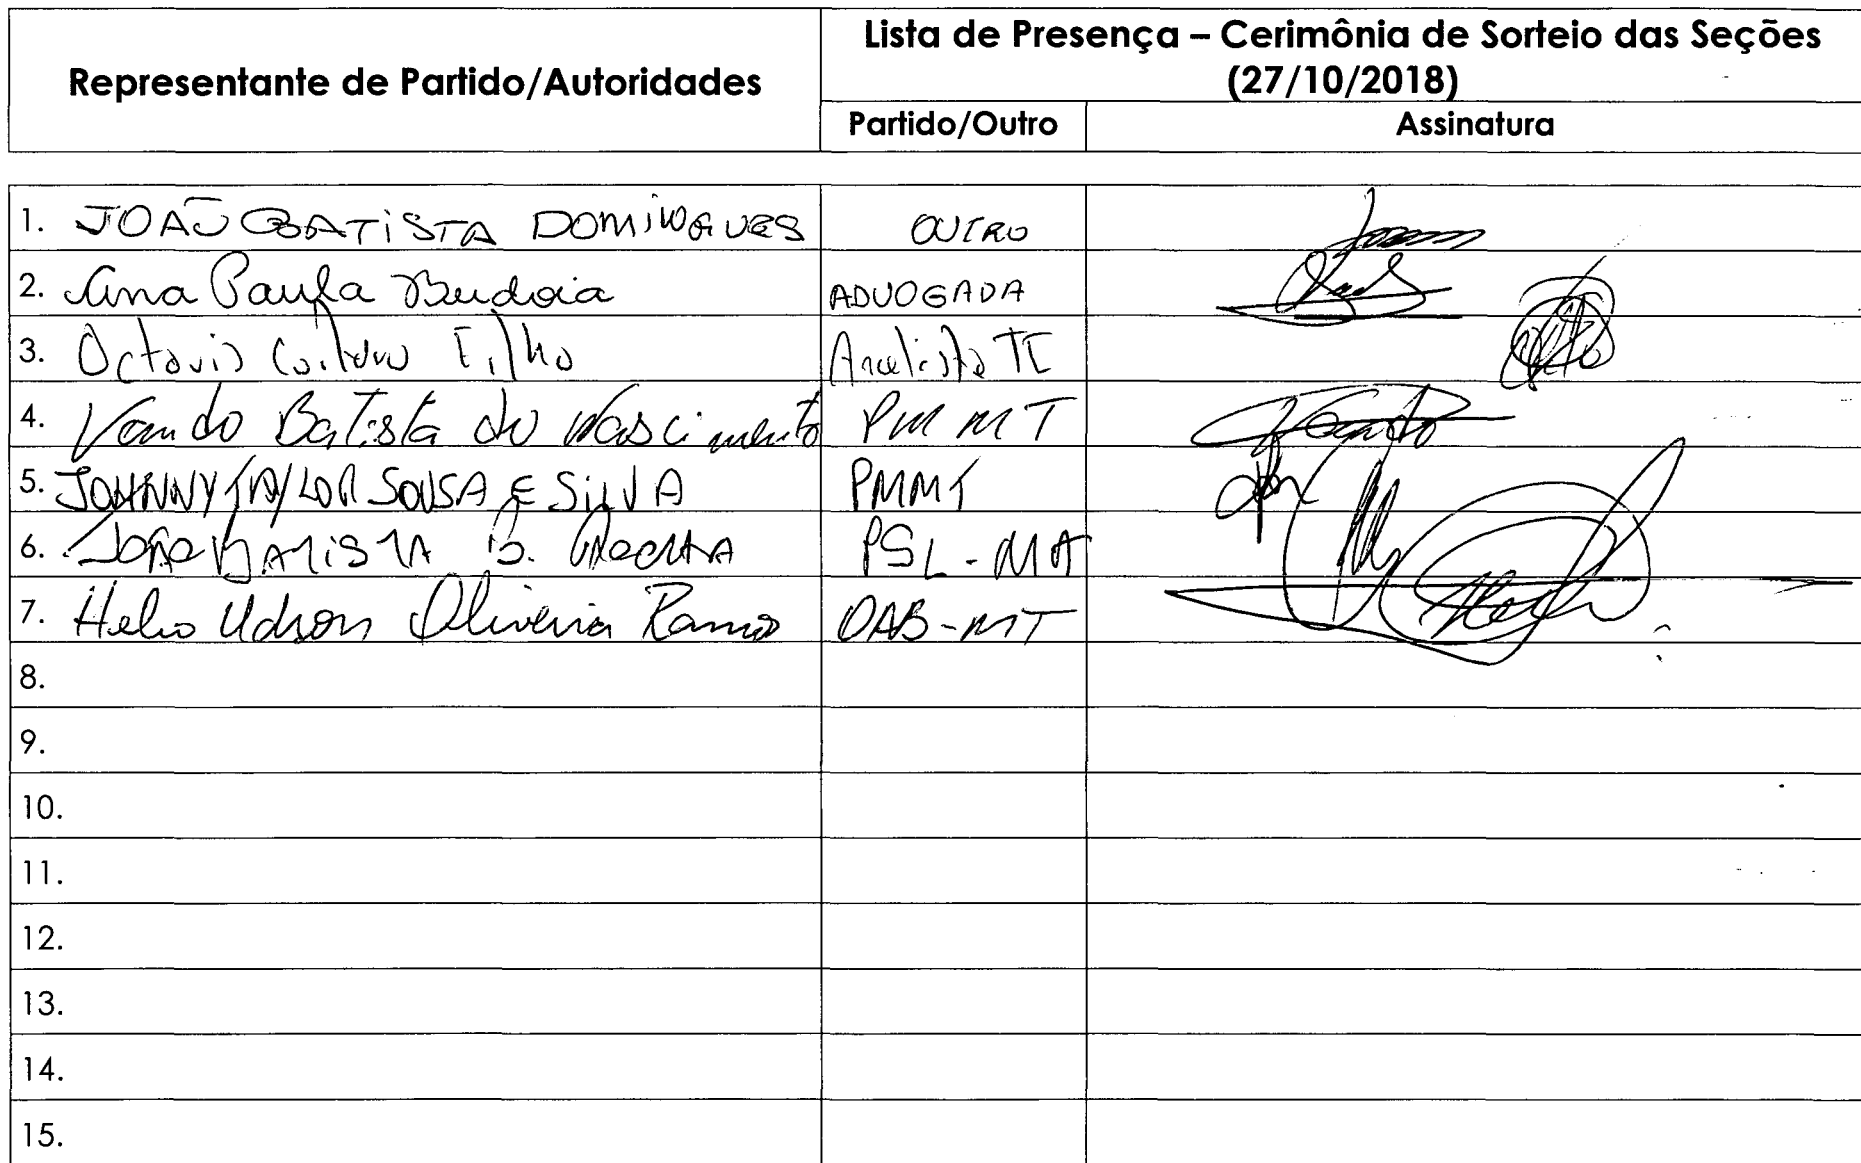 Representante de Partido/Autoridades
Lista de Presença – Cerimônia de Sorteio das Seções
(27/10/2018)
Partido/Outro Assinatura
1. JOÃO BATISTA DOMINGUES OUTRO
2. Ana Paula Budoia ADVOGADA
3. Octavio Filho Analista TI
4. Vando Batista do Nascimento PMMT
5. JOHNNY TAYLOR SOUSA E SILVA PMMT
6. João BATISTA B. PSL-MA
7. Helio Udson Oliveira Ramos OAB-MT
8.
9.
10.
11.
12.
13.
14.
15.